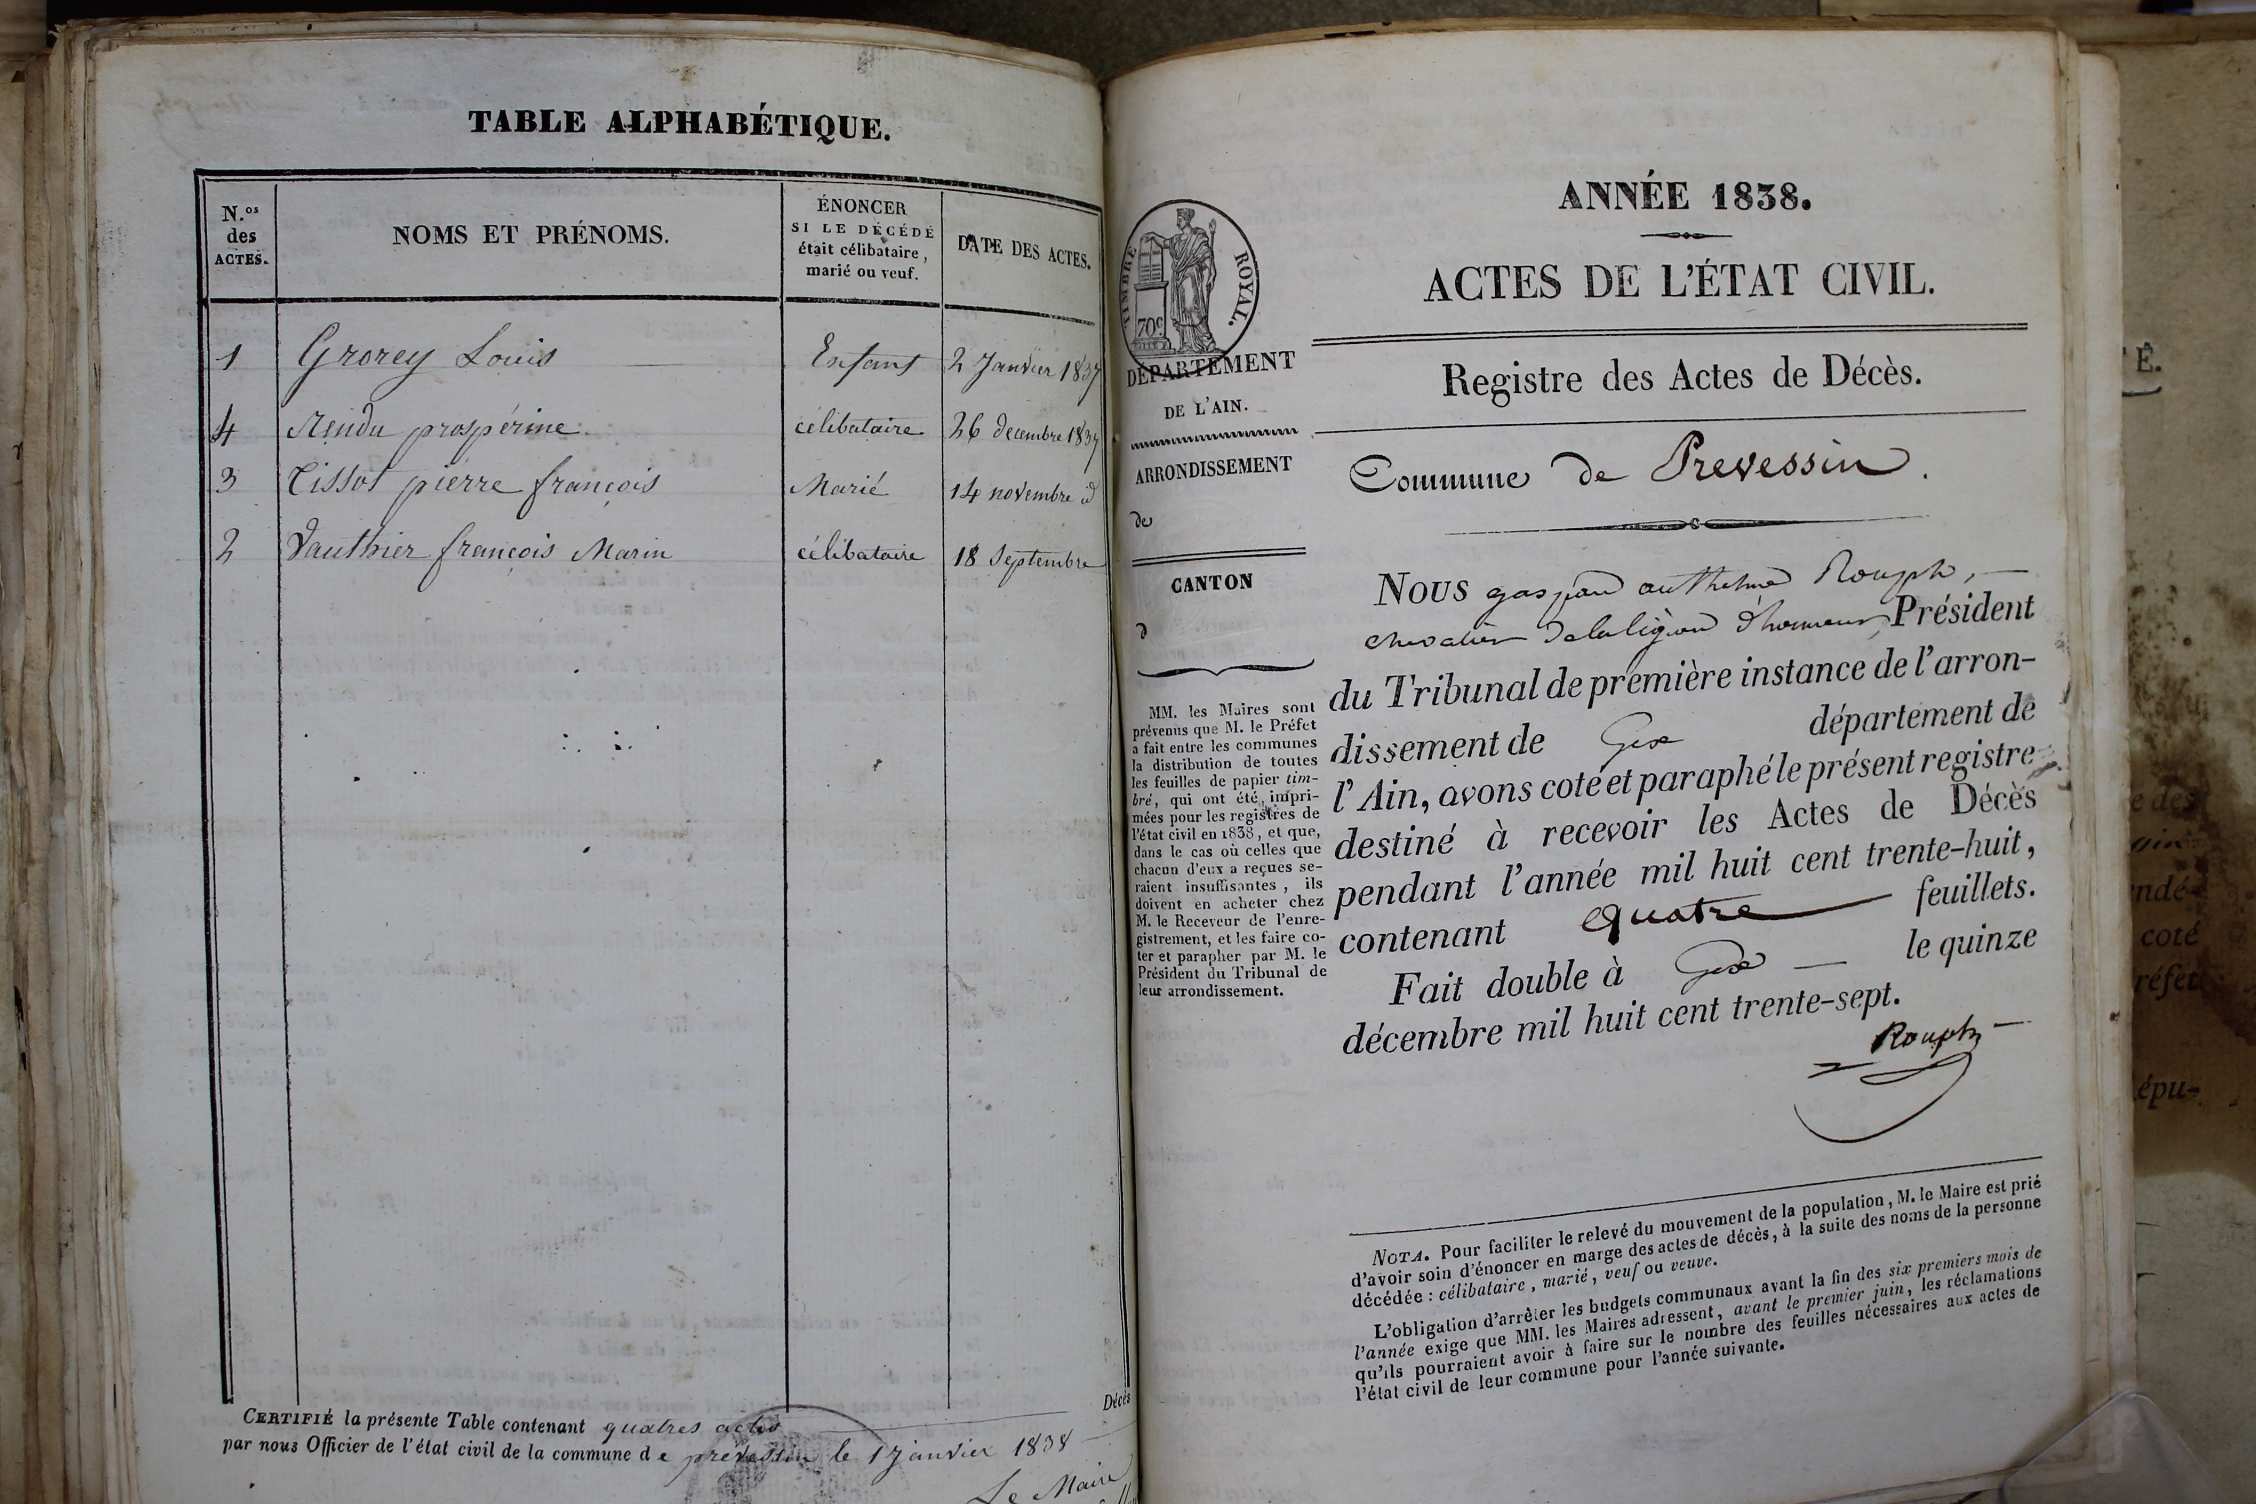 TABLE ALPHABÉTIQUE.
N.os des ACTES.
NOMS ET PRÉNOMS.
ÉNONCER
SI LE DÉCÉDÉ
était célibataire,
marié ou veuf.
DATE DES ACTES.
1 Grorey Louis Enfant 2 Janvier 1837
4 Rendu prospérine célibataire 26 decembre 1837
3 Tissot pierre françois Marié 14 novembre id
2 Vauthier françois Marin célibataire 18 Septembre
Décès
CERTIFIÉ la présente Table contenant quatres actes
par nous Officier de l'état civil de la commune de prévessin le 1 janvier 1838
Le Maire
TIMBRE ROYAL.
70c
DÉPARTEMENT
DE L'AIN.
ARRONDISSEMENT
de
CANTON
d
MM. les Maires sont
prévenus que M. le Préfet
a fait entre les communes
la distribution de toutes
les feuilles de papier tim-
bré, qui ont été impri-
mées pour les registres de
l'état civil en 1838, et que,
dans le cas où celles que
chacun d'eux a reçues se-
raient insuffisantes, ils
doivent en acheter chez
M. le Receveur de l'enre-
gistrement, et les faire co-
ter et parapher par M. le
Président du Tribunal de
leur arrondissement.
ANNÉE 1838.
ACTES DE L'ÉTAT CIVIL.
Registre des Actes de Décès.
Commune de Prevessin.
NOUS gaspard anthelme Rouph,
chevalier de la légion d'honneur, Président
du Tribunal de première instance de l'arron-
dissement de Gex département de
l'Ain, avons coté et paraphé le présent registre
destiné à recevoir les Actes de Décès
pendant l'année mil huit cent trente-huit,
contenant quatre feuillets.
Fait double à Gex le quinze
décembre mil huit cent trente-sept.
Rouph
NOTA. Pour faciliter le relevé du mouvement de la population, M. le Maire est prié
d'avoir soin d'énoncer en marge des actes de décès, à la suite des noms de la personne
décédée : célibataire, marié, veuf ou veuve.
L'obligation d'arrêter les budgets communaux avant la fin des six premiers mois de
l'année exige que MM. les Maires adressent, avant le premier juin, les réclamations
qu'ils pourraient avoir à faire sur le nombre des feuilles nécessaires aux actes de
l'état civil de leur commune pour l'année suivante.
É.
e des
ndé-
coté
réfet
épu-